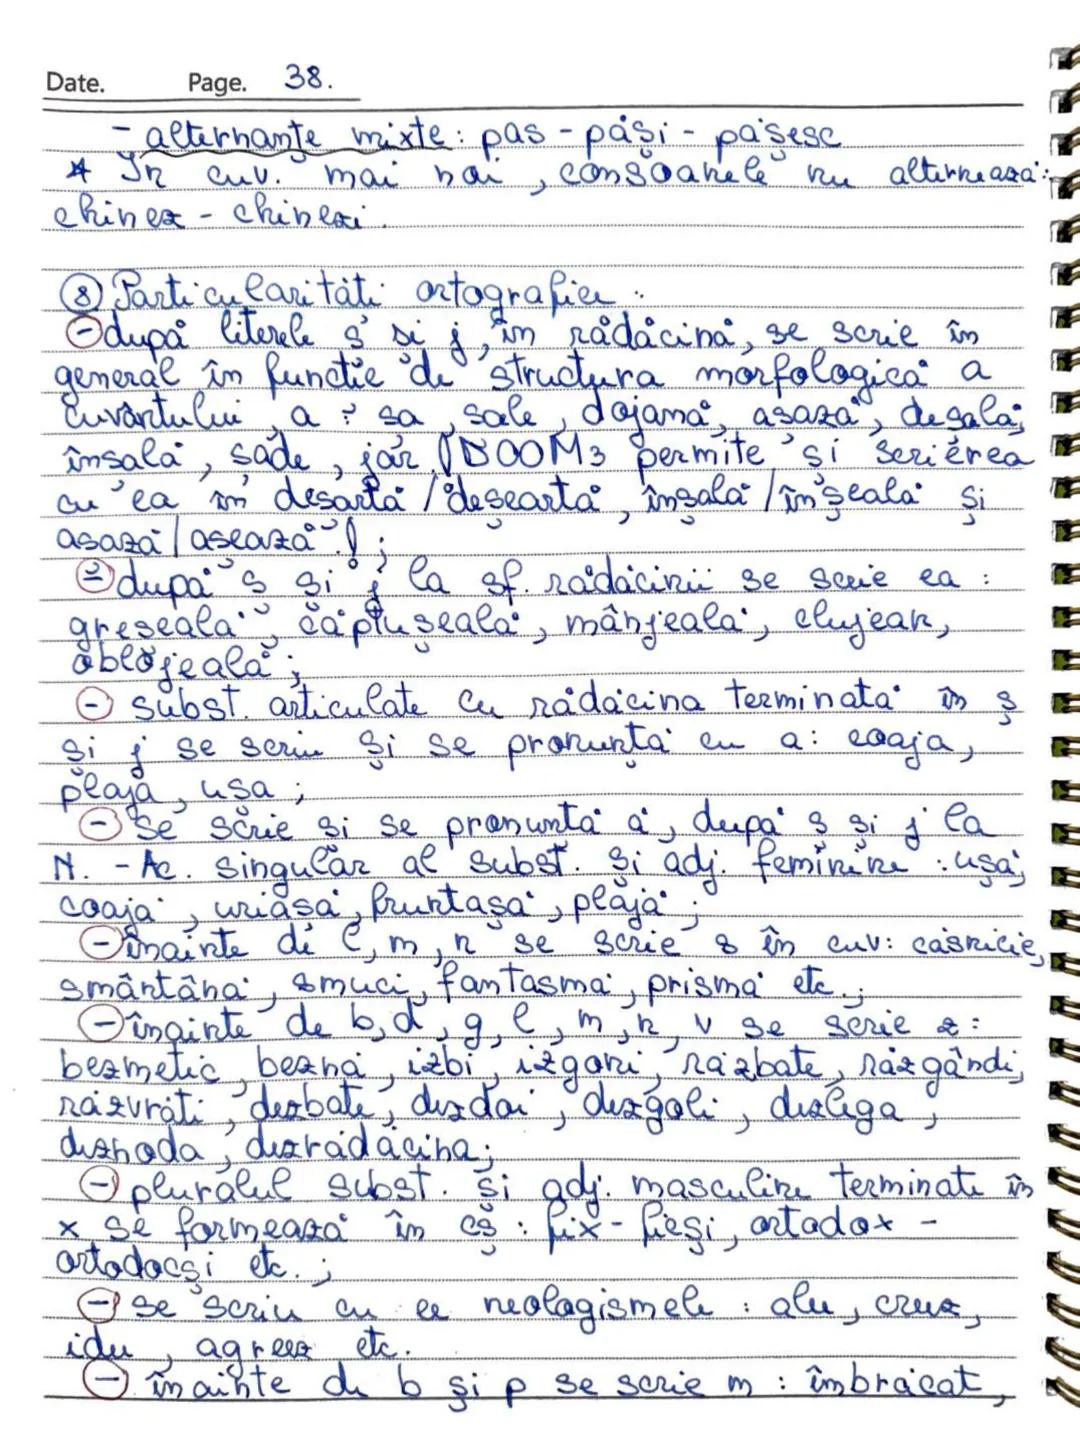 Date. Page. 38.
- alternanțe mixte: pas - păși - pășesc
* În cuv. mai noi, consoanele nu alternează:
chinez - chinezi.
⑧ Particularități ortografice:
- după literele ș și j, în rădăcină, se scrie în
general în funcție de structura morfologică a
cuvântului, a: șa, șale, dojană, așază, deșală,
înșală, șade, iar DOOM3 permite și scrierea
cu ea în deșartă / deșeartă, înșală / înșeală și
așază / așează!;
- după ș și j la sf. rădăcinii se scrie ea:
greșeală, căptușeală, mânjeală, clujean,
oblojeală;
- subst. articulate cu rădăcina terminată în ș
și j se scriu și se pronunță cu a: coaja,
plaja, ușa;
- se scrie și se pronunță ă, după ș și j la
N. - Ac. singular al subst. și adj. feminine: ușă,
coajă, uriașă, fruntașă, plajă;
- înainte de l, m, n se scrie s în cuv: căsnicie,
smântână, smuci, fantasmă, prismă etc.;
- înainte de b, d, g, l, m, n, v se scrie z:
bezmetic, beznă, izbi, izgoni, răzbate, răzgândi,
răzvrăti, dezbate, dezdoi, dezgoli, dezlega,
deznoda, dezrădăcina;
- pluralul subst. și adj. masculine terminate în
x se formează în cș: fix - ficși, ortodox -
ortodocși etc.;
- se scriu cu ee neologismele: alee, creez,
idee, agreez etc.
- înainte de b și p se scrie m: îmbrăcat,